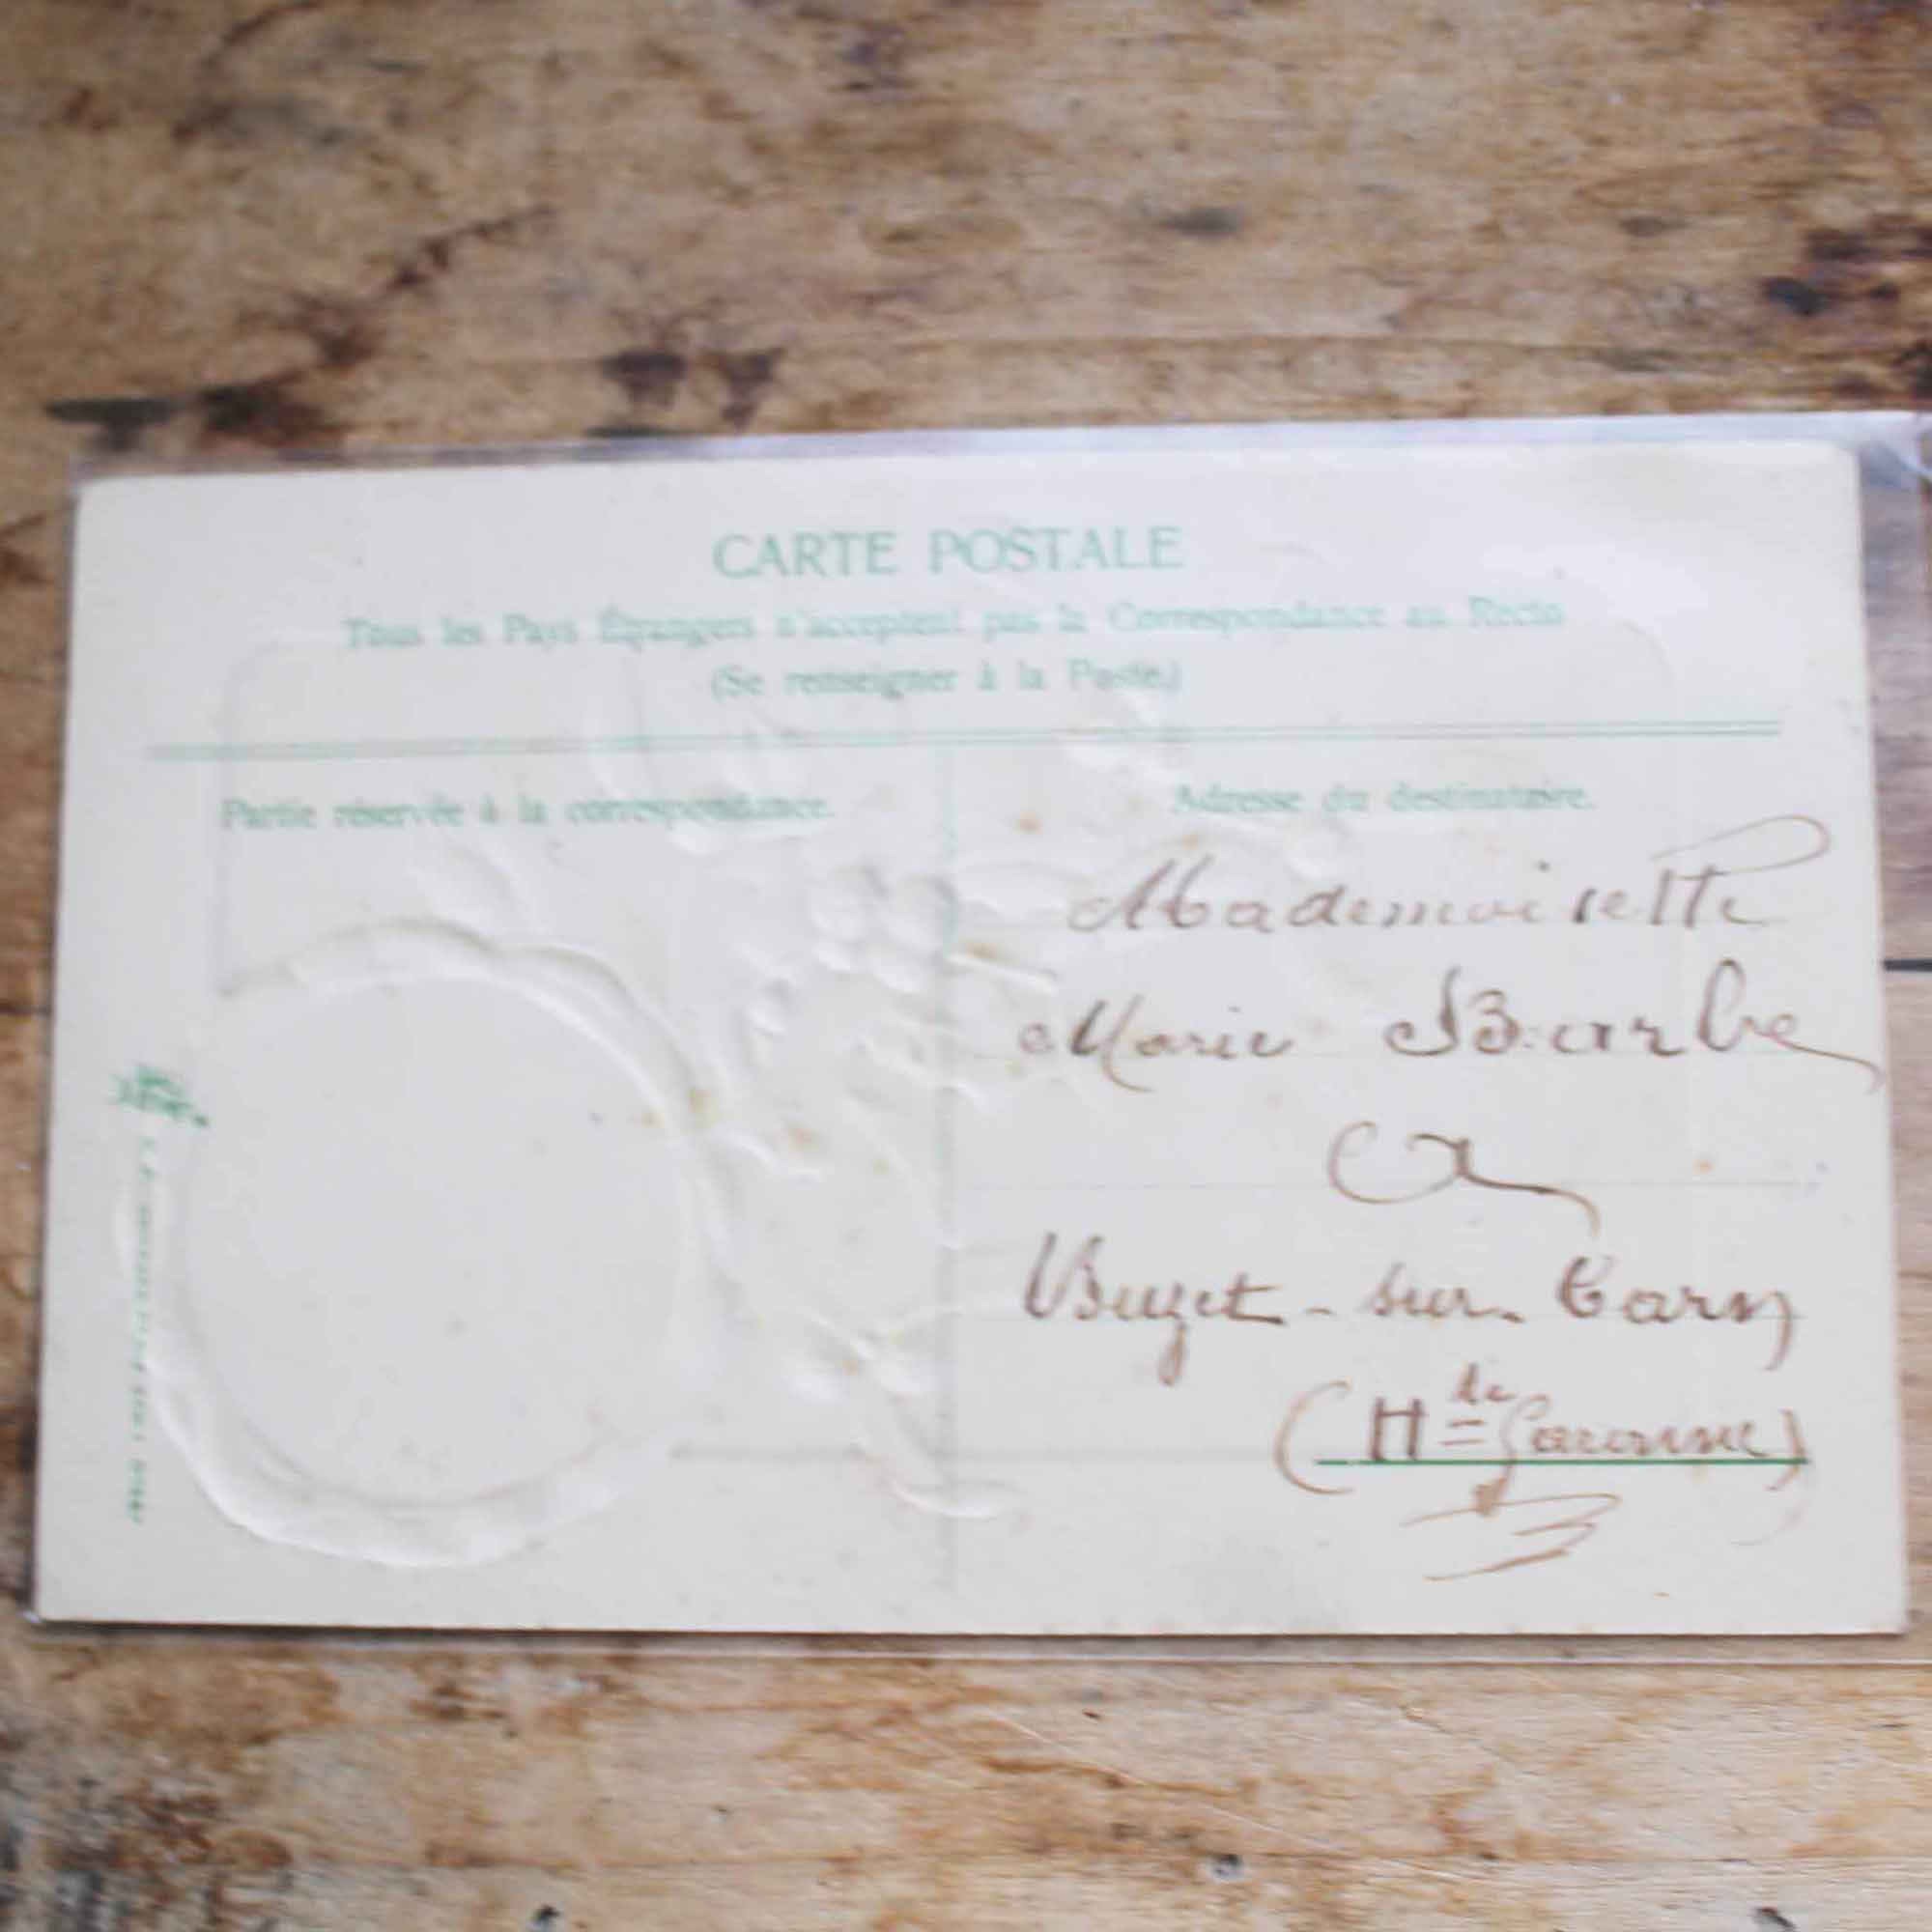 CARTE POSTALE
Tous les Pays Étrangers n'acceptent pas la Correspondance au Recto
(Se renseigner à la Poste.)
Partie réservée à la correspondance.
Adresse du destinataire.
Mademoiselle
Marie Barbe
à
Buzet-sur-Tarn
(Hte Garonne)